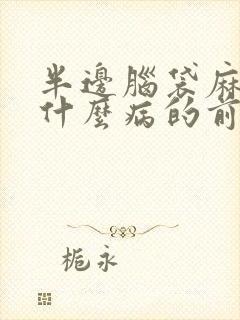 半邊腦袋麻
什麼病的前
栀永